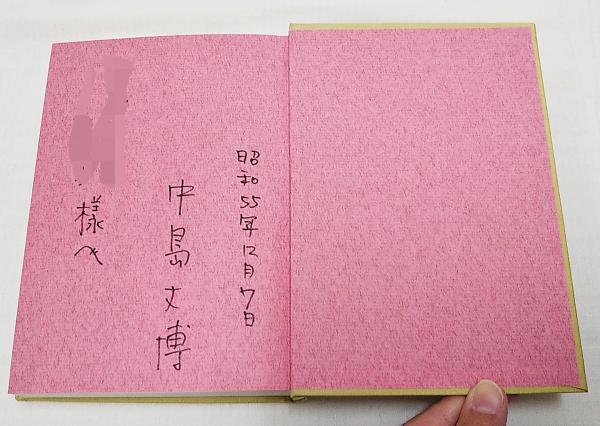 昭和55年12月7日
中島丈博
様へ